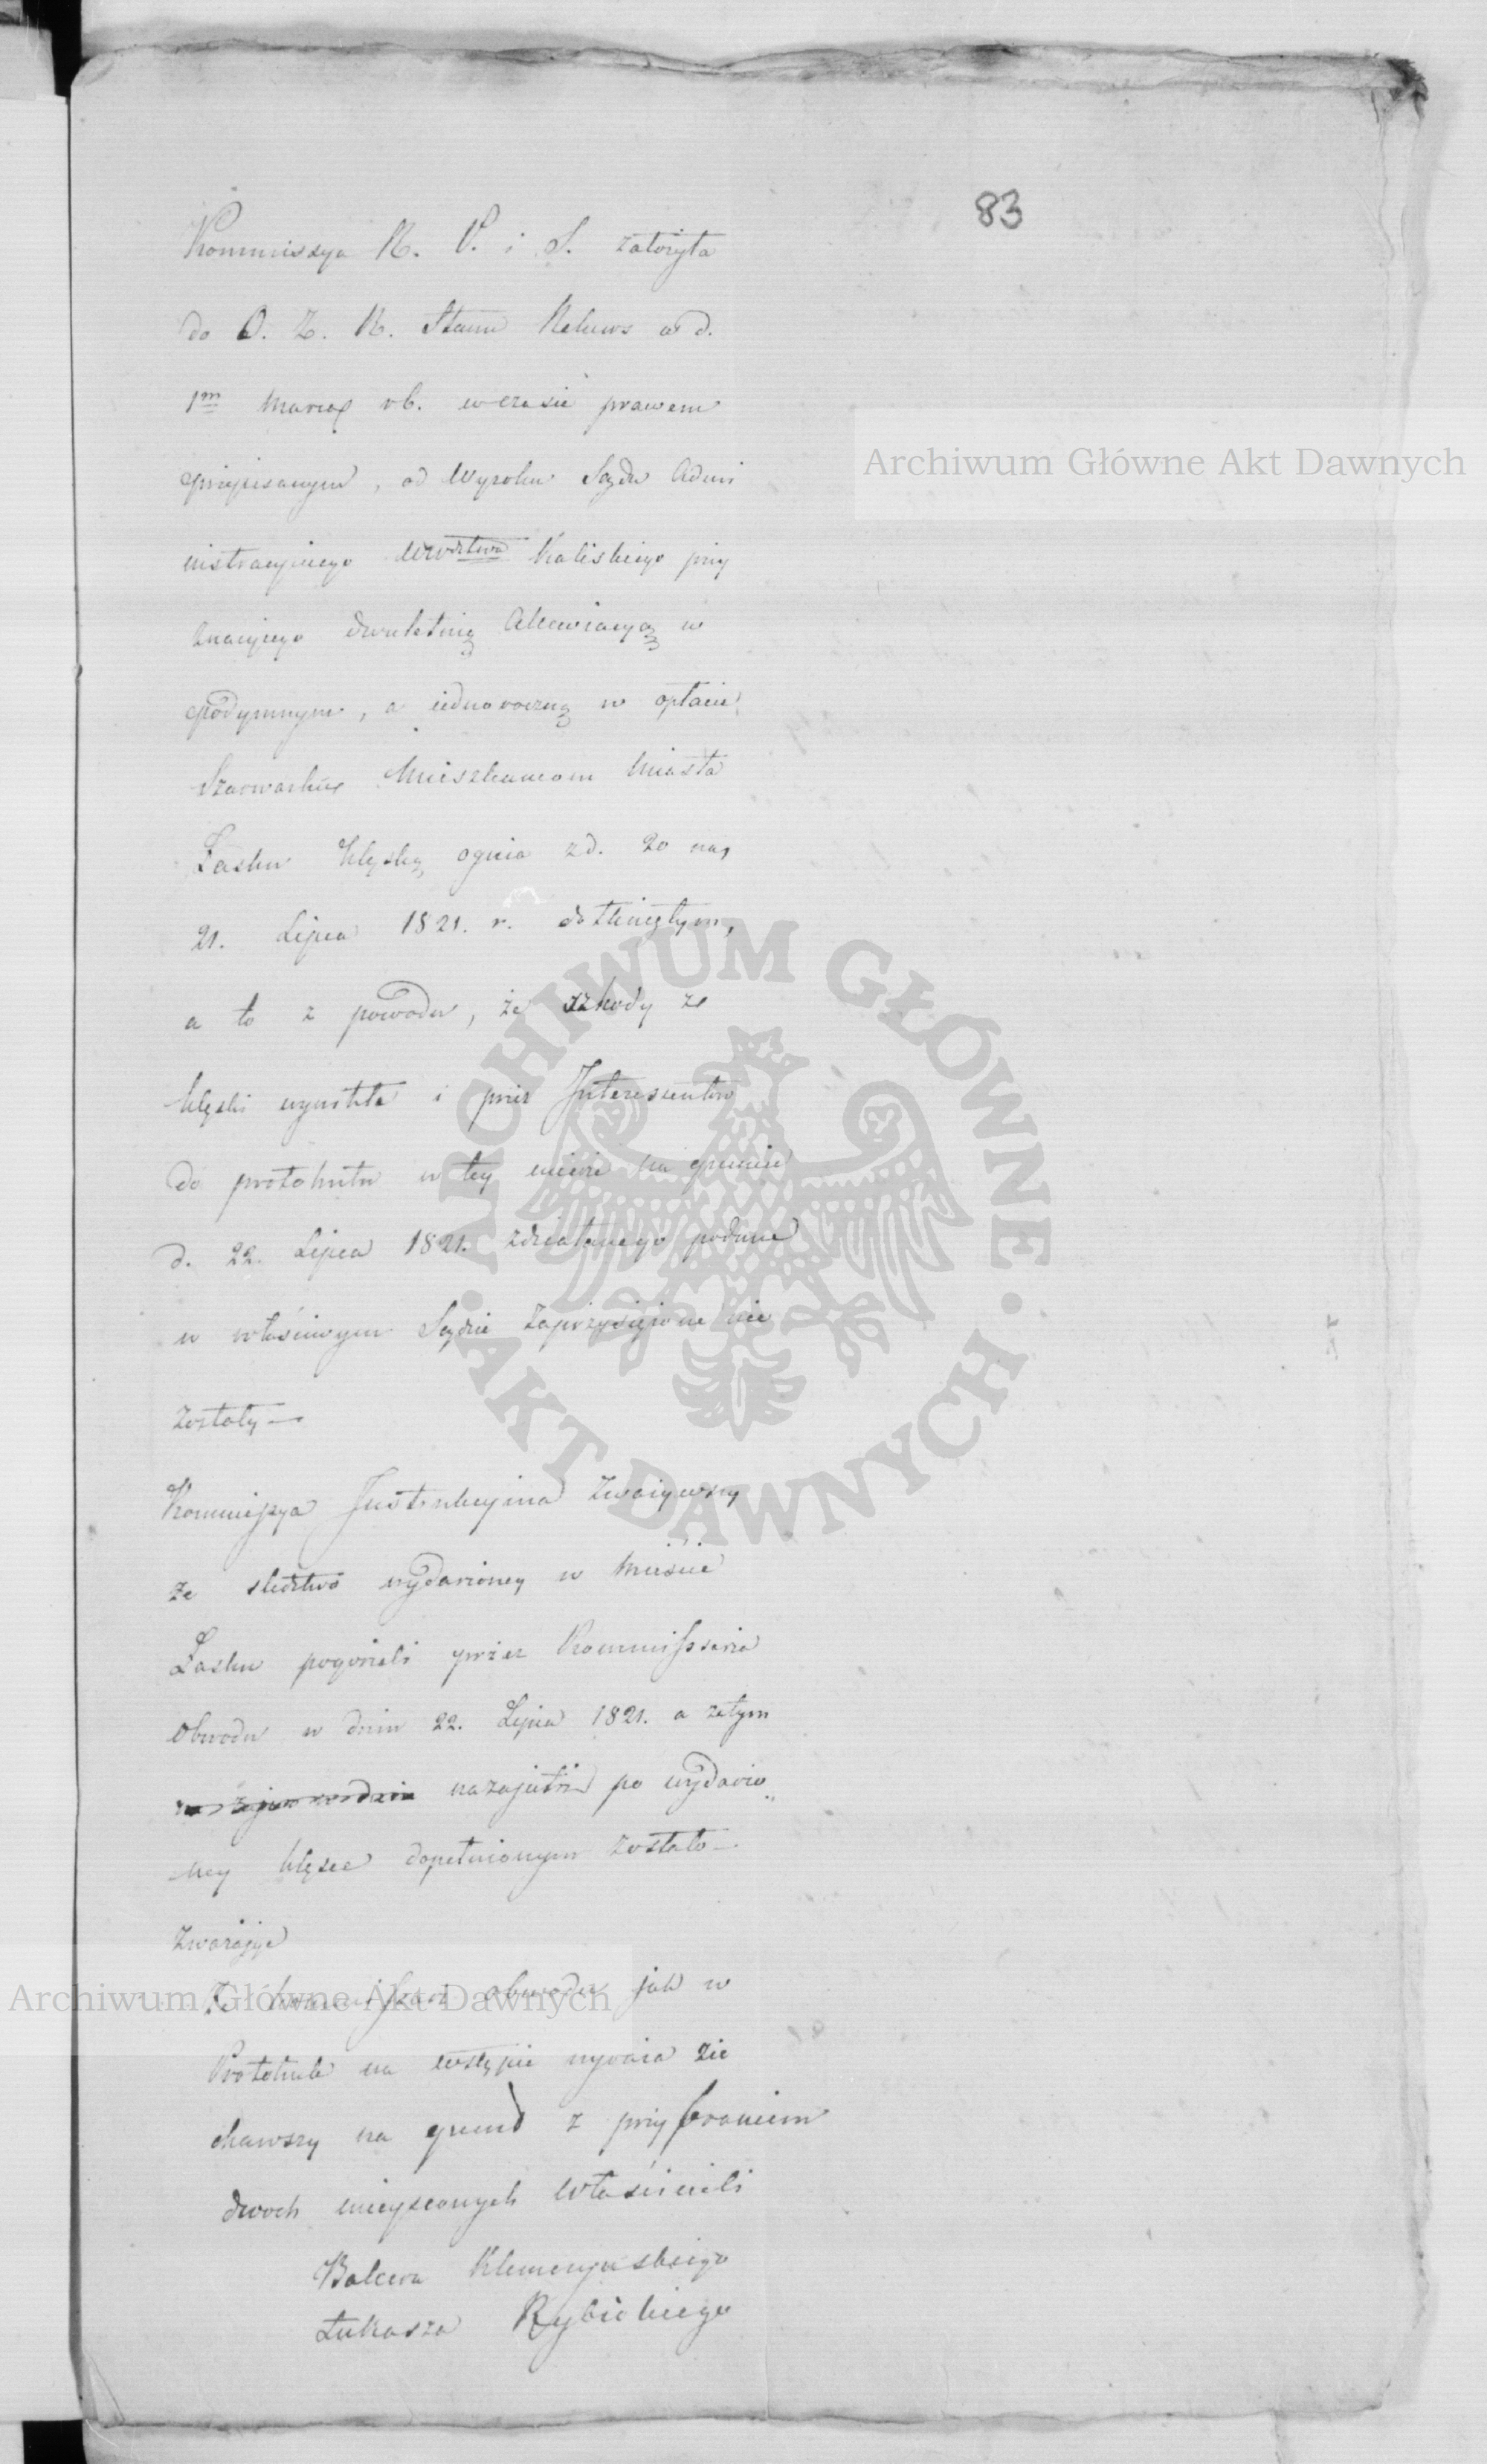 83
Kommissya R. P. i S. założyła
do O. Z. R. Stanu Rekurs w d.
1m Marca rb. w czasie prawem
przepisanym, od Wyroku Sądu Admi
nistracyinego Wwodztwa Kaliskiego przy
znaiącego dwuletnią Allewiacyą w
podymnym, a iednoroczną w opłacie
Szarwarku Mieszkancom Miasta
Łasku klęską ognia z d. 20 na
21. Lipca 1821. r. dotkniętym,
a to z powodu, że szkody ze
klęski wynikłe i przez Interesentów
do protokułu w tey mierze na gruncie
d. 22. Lipca 1821. zdziałanego podane
w właściwym Sądzie zaprzysiężone nie
zostały —
Kommissya Instrukcyina zważywszy
ze sledztwo wydarzoney w Mieście
Łasku pogorzeli przez Kommissarza
Obwodu w dniu 22. Lipca 1821. a zatym
nazajutrz po wydarzo„
ney klęsce dopełnionym zostało —
Zważaiąc
Że Kommissarz obwodu jak w
Protokule na wstępie wyraża zie
chawszy na grunt z przybraniem
dwoch mieyscowych Właścicieli
Balcera Klemczyńskiego
Łukasza Rybickiego
Archiwum Główne Akt Dawnych
ARCHIWUM GŁÓWNE · AKT DAWNYCH ·
Archiwum Główne Akt Dawnych